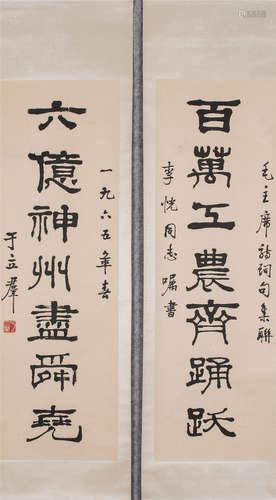 毛主席诗词句集联
百萬工農齊踊跃
李恍同志嘱书
一九六五年春
六億神州盡舜堯
于立群